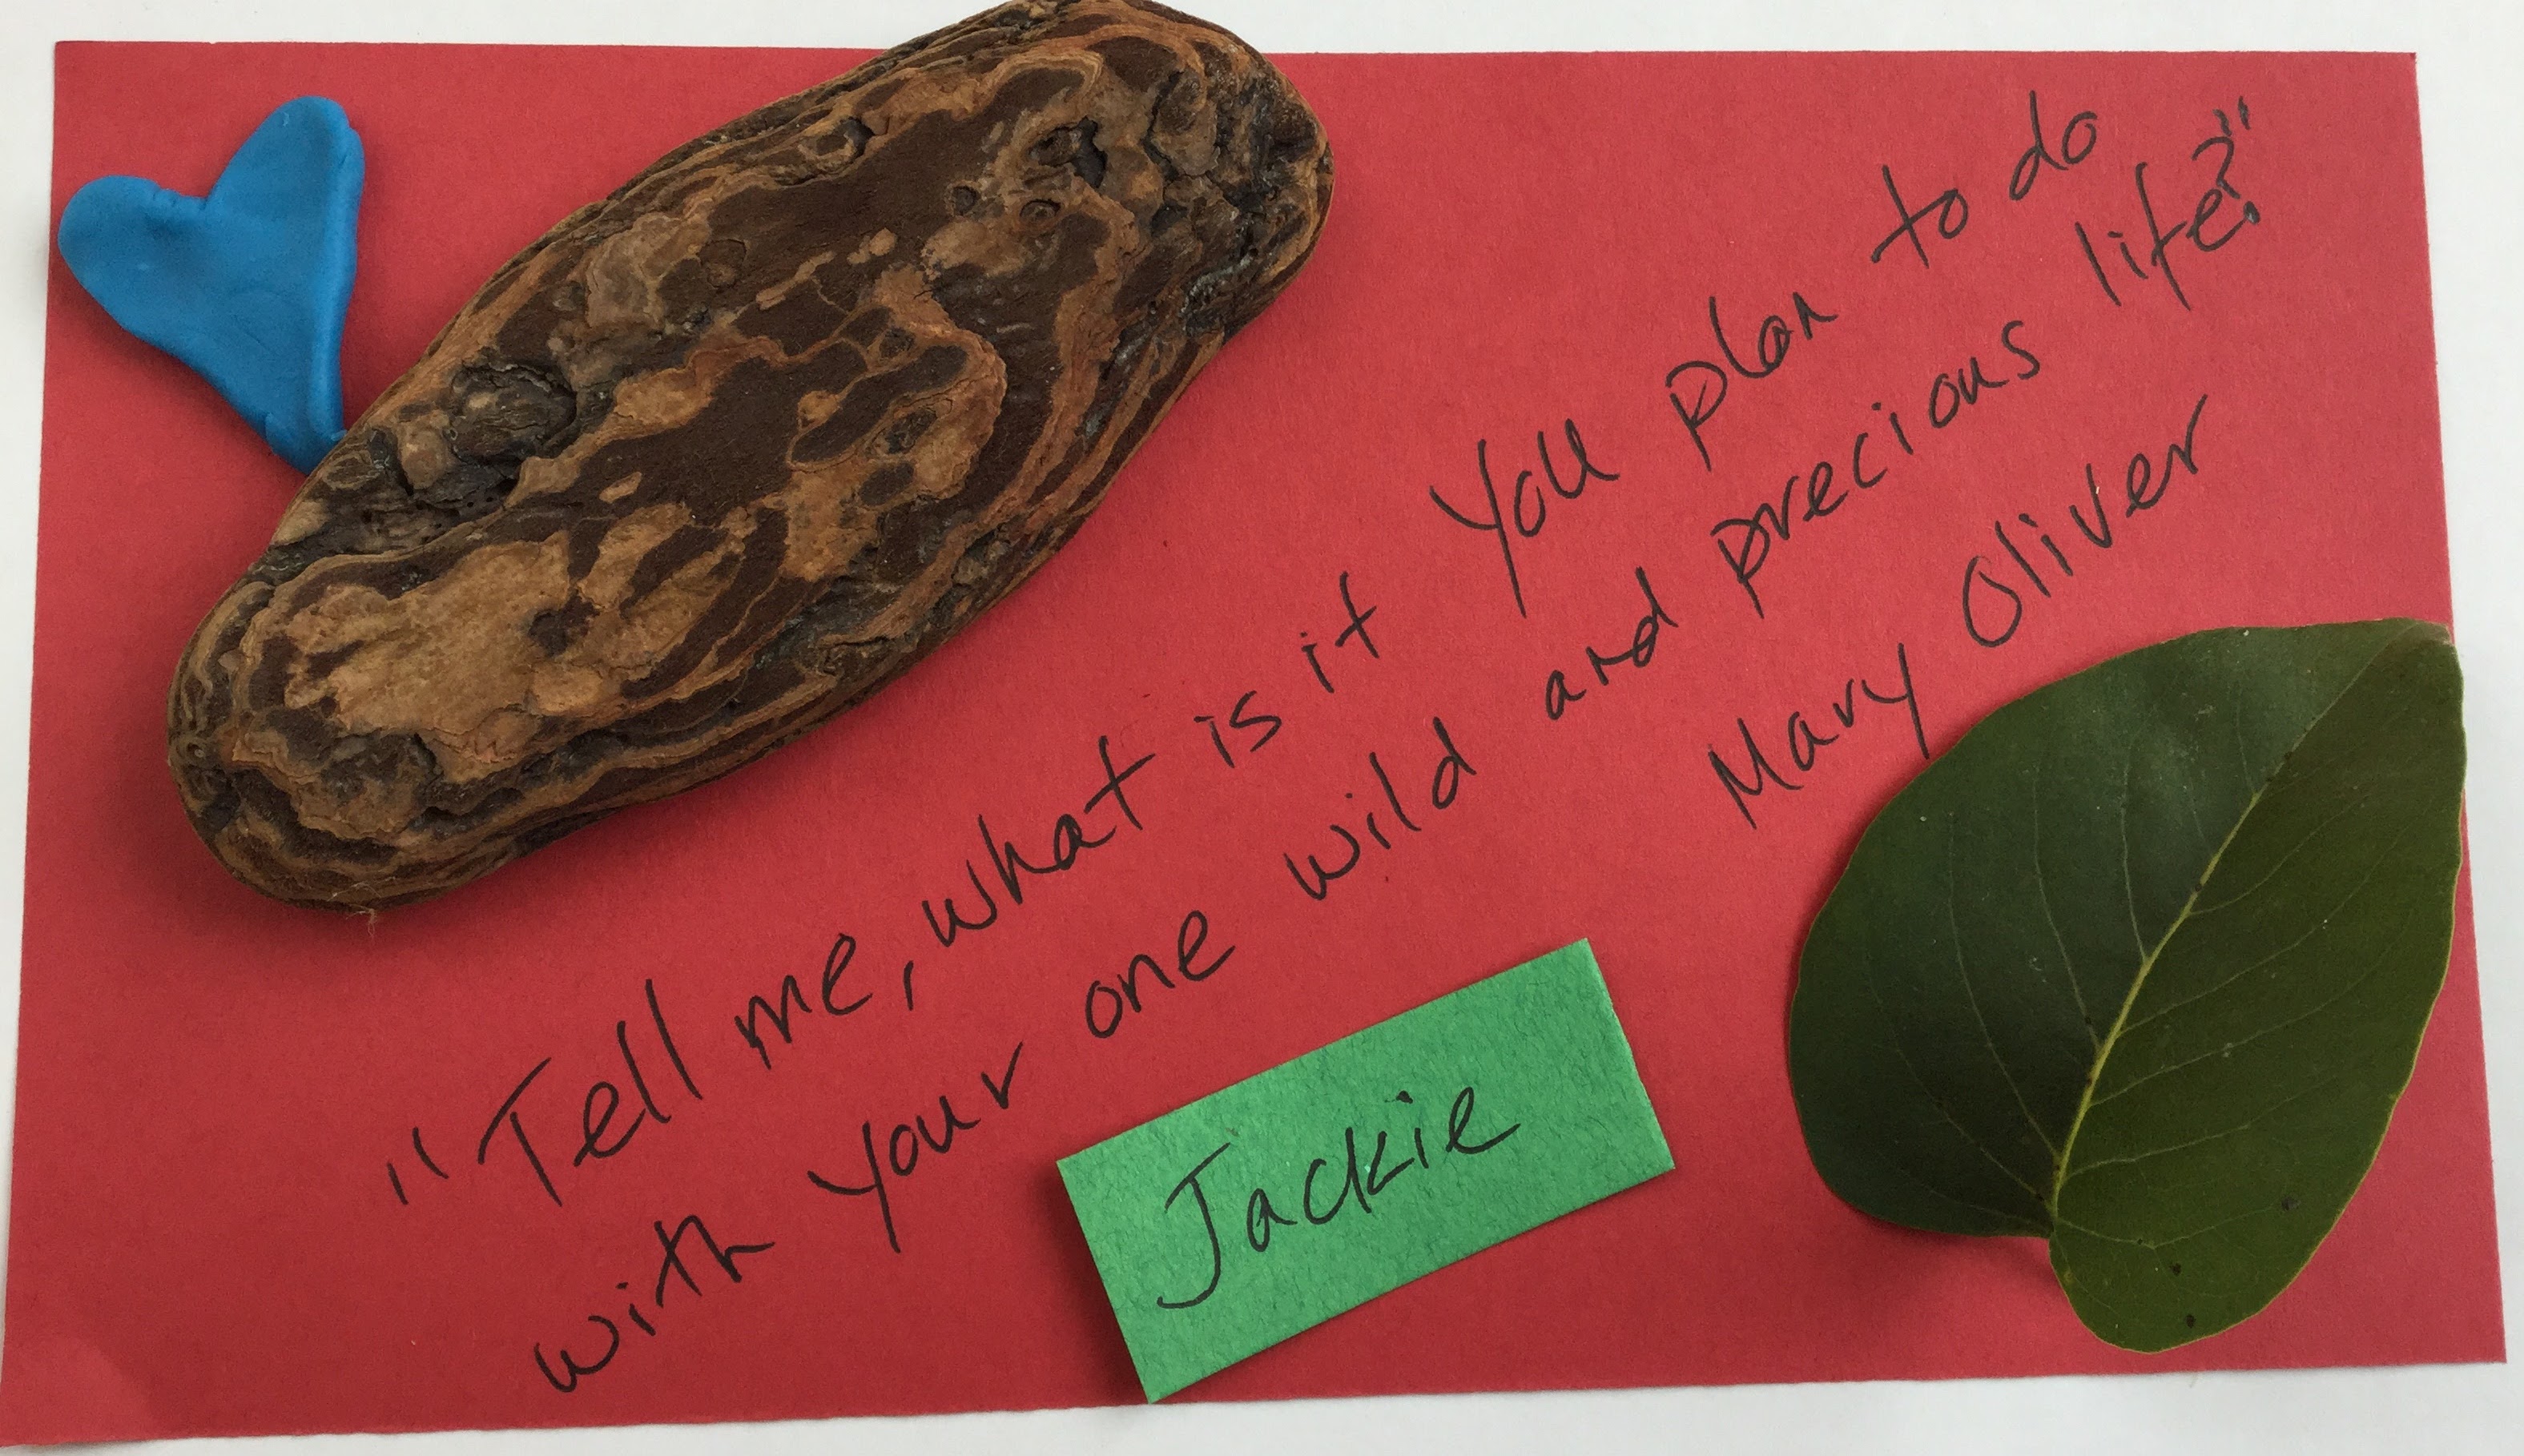 "Tell me, what is it you plan to do
with your one wild and precious life?"
Mary Oliver
Jackie